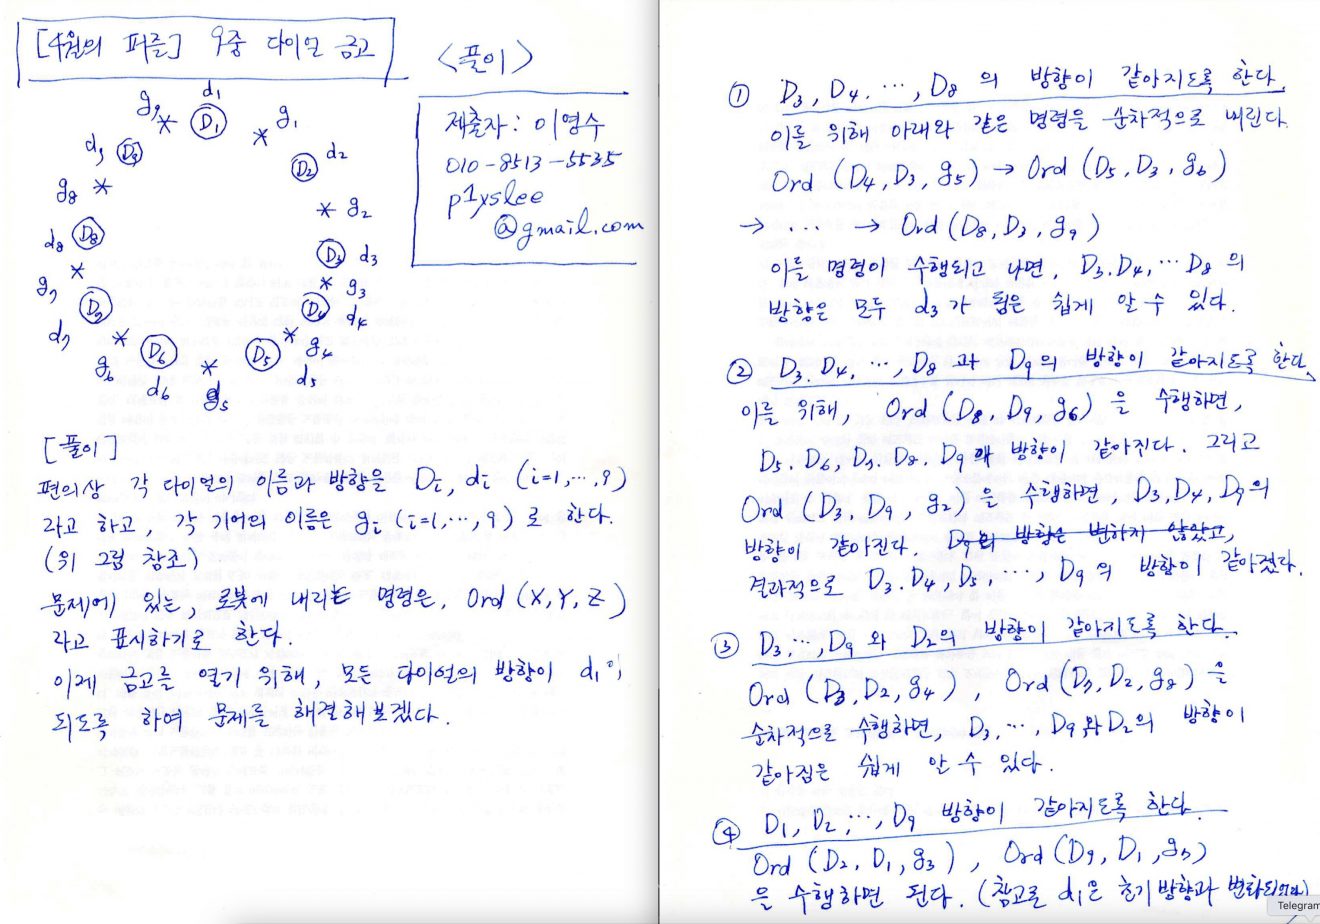 [4월의 퍼즐] 9중 다이얼 금고
<풀이>
제출자: 이영수
010-8513-5535
p1yslee
@gmail.com
d1
g9 * D1 * g1
d9 D9
D2 d2
g8 *
* g2
d8 D8
D3 d3
*
* g3
g7
D7
D4 d4
d7
* g4
g6 * D6 * D5
d6 g5 d5
[풀이]
편의상 각 다이얼의 이름과 방향을 Di, di (i=1,⋯,9)
라고 하고, 각 기어의 이름은 gi (i=1,⋯,9)로 한다.
(위 그림 참조)
문제에 있는, 로봇에 내리는 명령은, Ord (X, Y, Z)
라고 표시하기로 한다.
이제 금고를 열기 위해, 모든 다이얼의 방향이 d1이
되도록 하여 문제를 해결해보겠다.
① D3, D4, ⋯, D8 의 방향이 같아지도록 한다.
이를 위해 아래와 같은 명령을 순차적으로 내린다.
Ord (D4, D3, g5) → Ord (D5, D3, g6)
→ ⋯ → Ord (D8, D3, g9)
이들 명령이 수행되고 나면, D3, D4, ⋯ D8 의
방향은 모두 d3가 됨은 쉽게 알 수 있다.
② D3, D4, ⋯, D8 과 D9의 방향이 같아지도록 한다.
이를 위해, Ord (D8, D9, g6) 을 수행하면,
D5, D6, D7, D8, D9 방향이 같아진다. 그리고
Ord (D3, D9, g2) 을 수행하면, D3, D4, D9의
방향이 같아진다. D9의 방향은 변하지 않았고,
결과적으로 D3, D4, D5, ⋯, D9 의 방향이 같아졌다.
③ D3, ⋯, D9 와 D2의 방향이 같아지도록 한다.
Ord (D3, D2, g4), Ord (D9, D2, g8) 을
순차적으로 수행하면, D3, ⋯, D9 와 D2의 방향이
같아짐은 쉽게 알 수 있다.
④ D1, D2, ⋯, D9 방향이 같아지도록 한다.
Ord (D2, D1, g3), Ord (D9, D1, g5)
을 수행하면 된다. (참고로 d1은 초기방향과
Telegram